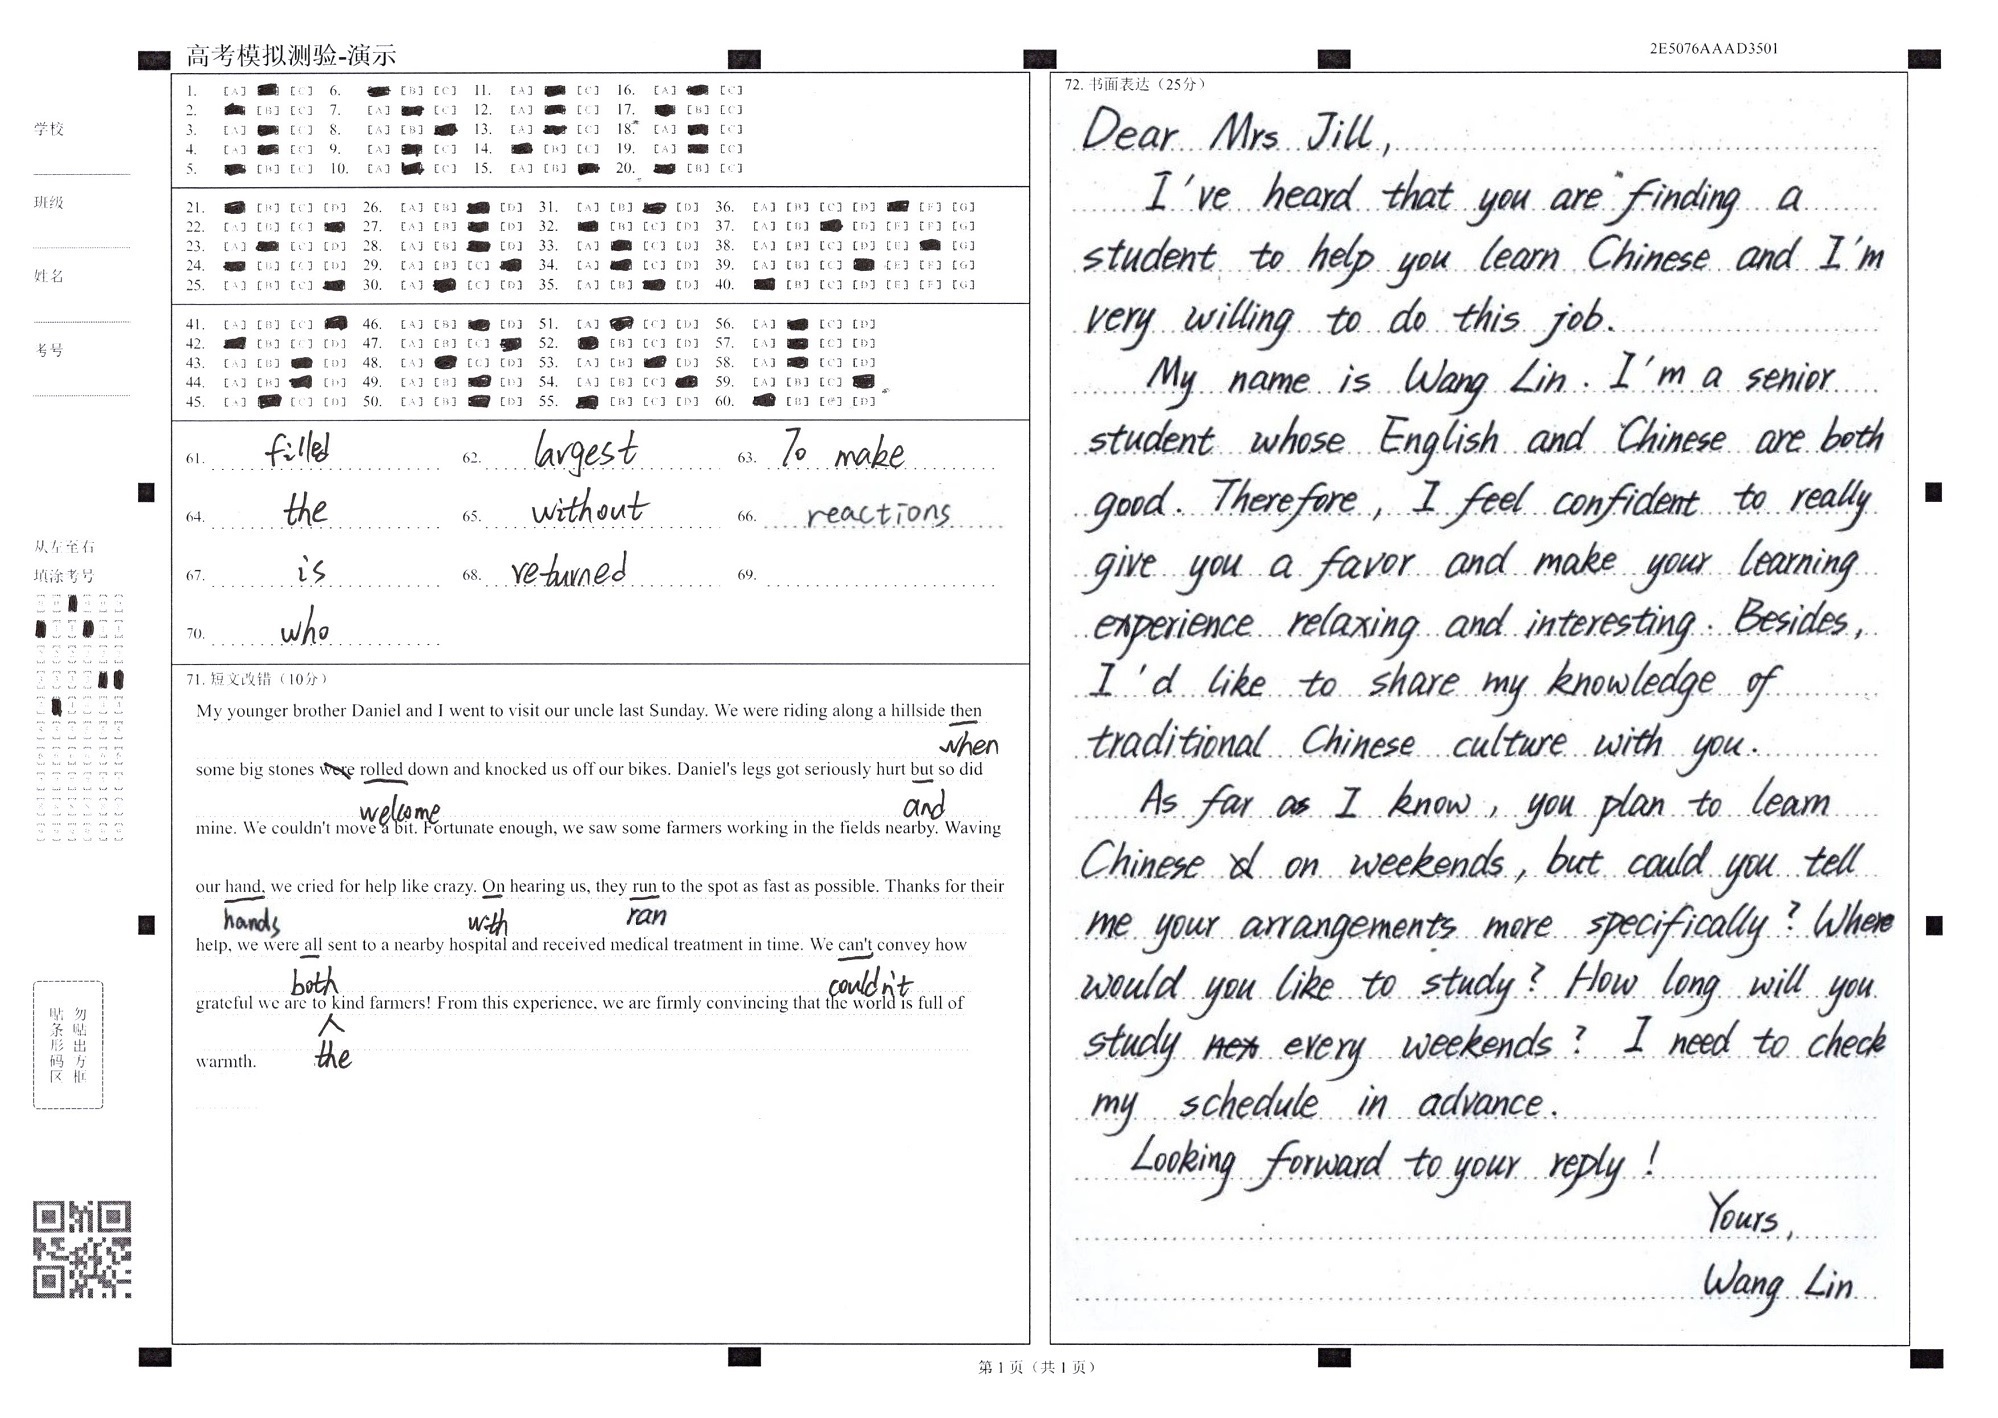 高考模拟测验-演示
2E5076AAAD3501
学校
班级
姓名
考号
从左至右
填涂考号
贴条形码区
勿贴出方框
1. [A] [C] 6. [B] [C] 11. [A] [C] 16. [A] [C]
2. [B] [C] 7. [A] [C] 12. [A] [C] 17. [B] [C]
3. [A] [C] 8. [A] [B] 13. [A] [C] 18. [A] [C]
4. [A] [C] 9. [A] [C] 14. [B] [C] 19. [A] [C]
5. [B] [C] 10. [A] [C] 15. [A] [B] 20. [B] [C]
21. [B] [C] [D] 26. [A] [B] [D] 31. [A] [B] [D] 36. [A] [B] [C] [D] [F] [G]
22. [A] [B] [C] 27. [A] [B] [D] 32. [B] [C] [D] 37. [A] [B] [D] [E] [F] [G]
23. [A] [C] [D] 28. [A] [B] [D] 33. [A] [C] [D] 38. [A] [B] [C] [D] [E] [G]
24. [B] [C] [D] 29. [A] [B] [C] 34. [A] [C] [D] 39. [A] [B] [C] [E] [F] [G]
25. [A] [B] [C] 30. [A] [C] [D] 35. [A] [B] [D] 40. [B] [C] [D] [E] [F] [G]
41. [A] [B] [C] 46. [A] [B] [D] 51. [A] [C] [D] 56. [A] [C] [D]
42. [B] [C] [D] 47. [A] [B] [C] 52. [B] [C] [D] 57. [A] [C] [D]
43. [A] [B] [D] 48. [A] [C] [D] 53. [A] [B] [D] 58. [A] [C] [D]
44. [A] [B] [D] 49. [A] [B] [D] 54. [A] [B] [C] 59. [A] [B] [C]
45. [A] [C] [D] 50. [A] [B] [D] 55. [B] [C] [D] 60. [B] [C] [D]
61. filled 62. largest 63. To make
64. the 65. without 66. reactions
67. is 68. returned 69.
70. who
71. 短文改错（10分）
My younger brother Daniel and I went to visit our uncle last Sunday. We were riding along a hillside then
when
some big stones were rolled down and knocked us off our bikes. Daniel's legs got seriously hurt but so did
welcome and
mine. We couldn't move a bit. Fortunate enough, we saw some farmers working in the fields nearby. Waving
our hand, we cried for help like crazy. On hearing us, they run to the spot as fast as possible. Thanks for their
hands with ran
help, we were all sent to a nearby hospital and received medical treatment in time. We can't convey how
both couldn't
grateful we are to kind farmers! From this experience, we are firmly convincing that the world is full of
the
warmth.
72. 书面表达（25分）
Dear Mrs Jill,
I've heard that you are finding a
student to help you learn Chinese and I'm
very willing to do this job.
My name is Wang Lin. I'm a senior
student whose English and Chinese are both
good. Therefore, I feel confident to really
give you a favor and make your learning
experience relaxing and interesting. Besides,
I'd like to share my knowledge of
traditional Chinese culture with you.
As far as I know, you plan to learn
Chinese on weekends, but could you tell
me your arrangements more specifically? Where
would you like to study? How long will you
study every weekends? I need to check
my schedule in advance.
Looking forward to your reply!
Yours,
Wang Lin
第 1 页（共 1 页）